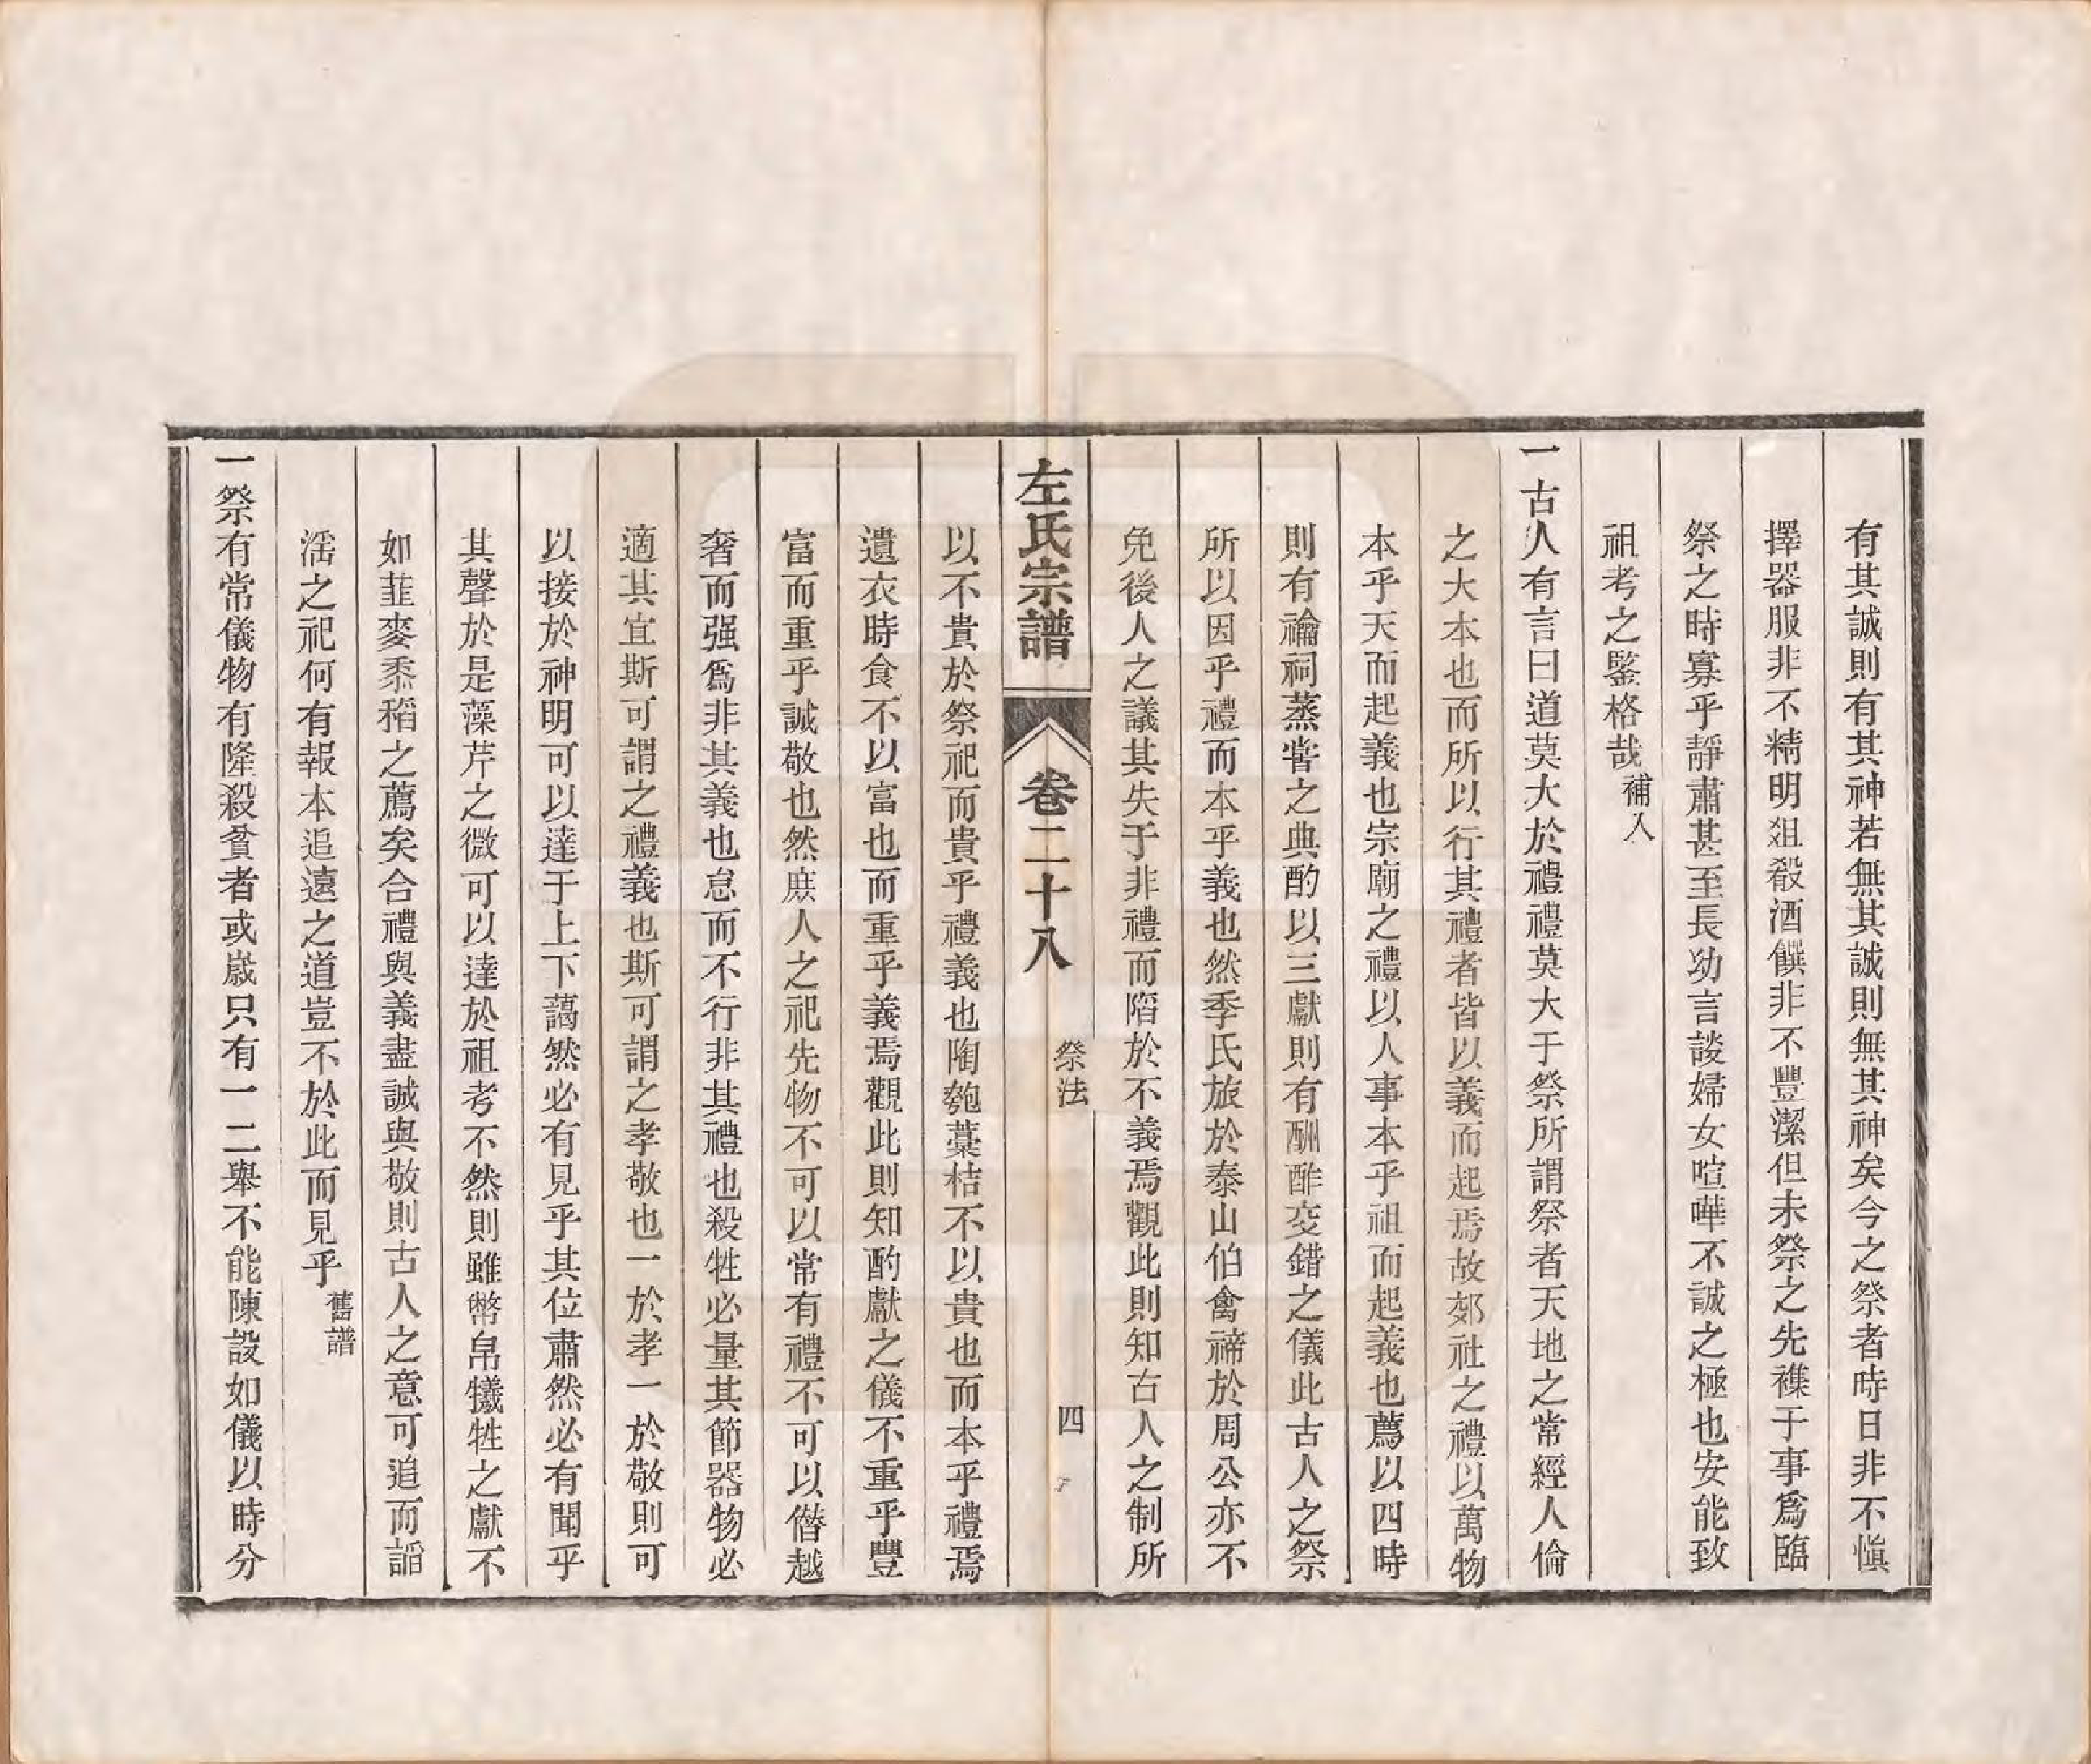 有其誠則有其神若無其誠則無其神矣今之祭者時日非不愼
擇器服非不精明俎殽酒饌非不豐潔但未祭之先襍于事爲臨
祭之時寡乎靜肅甚至長幼言談婦女喧嘩不誠之極也安能致
祖考之鑒格哉補入
一古人有言曰道莫大於禮禮莫大于祭所謂祭者天地之常經人倫
之大本也而所以行其禮者皆以義而起焉故郊社之禮以萬物
本乎天而起義也宗廟之禮以人事本乎祖而起義也薦以四時
則有禴祠蒸嘗之典酌以三獻則有酬酢交錯之儀此古人之祭
所以因乎禮而本乎義也然季氏旅於泰山伯禽禘於周公亦不
免後人之議其失于非禮而陷於不義焉觀此則知古人之制所
左氏宗譜 卷二十八 祭法 四
以不貴於祭祀而貴乎禮義也陶匏藁桔不以貴也而本乎禮焉
遺衣時食不以富也而重乎義焉觀此則知酌獻之儀不重乎豐
富而重乎誠敬也然庶人之祀先物不可以常有禮不可以僭越
奢而强爲非其義也怠而不行非其禮也殺牲必量其節器物必
適其宜斯可謂之禮義也斯可謂之孝敬也一於孝一於敬則可
以接於神明可以達于上下藹然必有見乎其位肅然必有聞乎
其聲於是藻芹之微可以達於祖考不然則雖幣帛犧牲之獻不
如韮麥黍稻之薦矣合禮與義盡誠與敬則古人之意可追而謟
滛之祀何有報本追遠之道豈不於此而見乎舊譜
一祭有常儀物有隆殺貧者或歲只有一二舉不能陳設如儀以時分